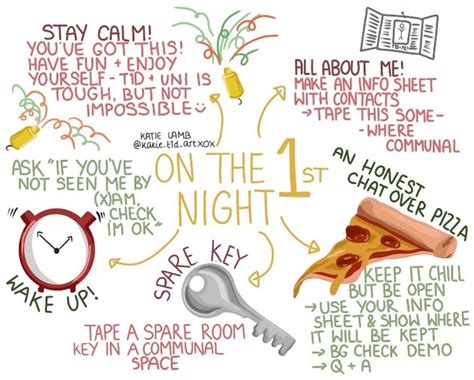 STAY CALM!
YOU'VE GOT THIS!
HAVE FUN + ENJOY
YOURSELF - T1D + UNI IS
TOUGH, BUT NOT
IMPOSSIBLE
ALL ABOUT ME!
MAKE AN INFO SHEET
WITH CONTACTS
→ TAPE THIS SOME-
-WHERE
COMMUNAL
KATIE LAMB
@katie.t1d_artxox
ASK "IF YOU'VE
NOT SEEN ME BY
(X)AM,
CHECK
I'M OK"
WAKE UP!
ON THE 1ST
NIGHT
AN HONEST
CHAT OVER PIZZA
KEEP IT CHILL
BUT BE OPEN
→ USE YOUR INFO
SHEET & SHOW WHERE
IT WILL BE KEPT
→ BG CHECK DEMO
→ Q + A
SPARE KEY
TAPE A SPARE ROOM
KEY IN A COMMUNAL
SPACE